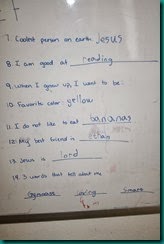 7. Coolest person on earth Jesus
8. I am good at reading
9. When I grow up, I want to be:
10. Favorite color yellow
11. I do not like to eat bananas
12. My best friend is
13. Jesus is lord
14. 3 words that tell about me
loving Smart